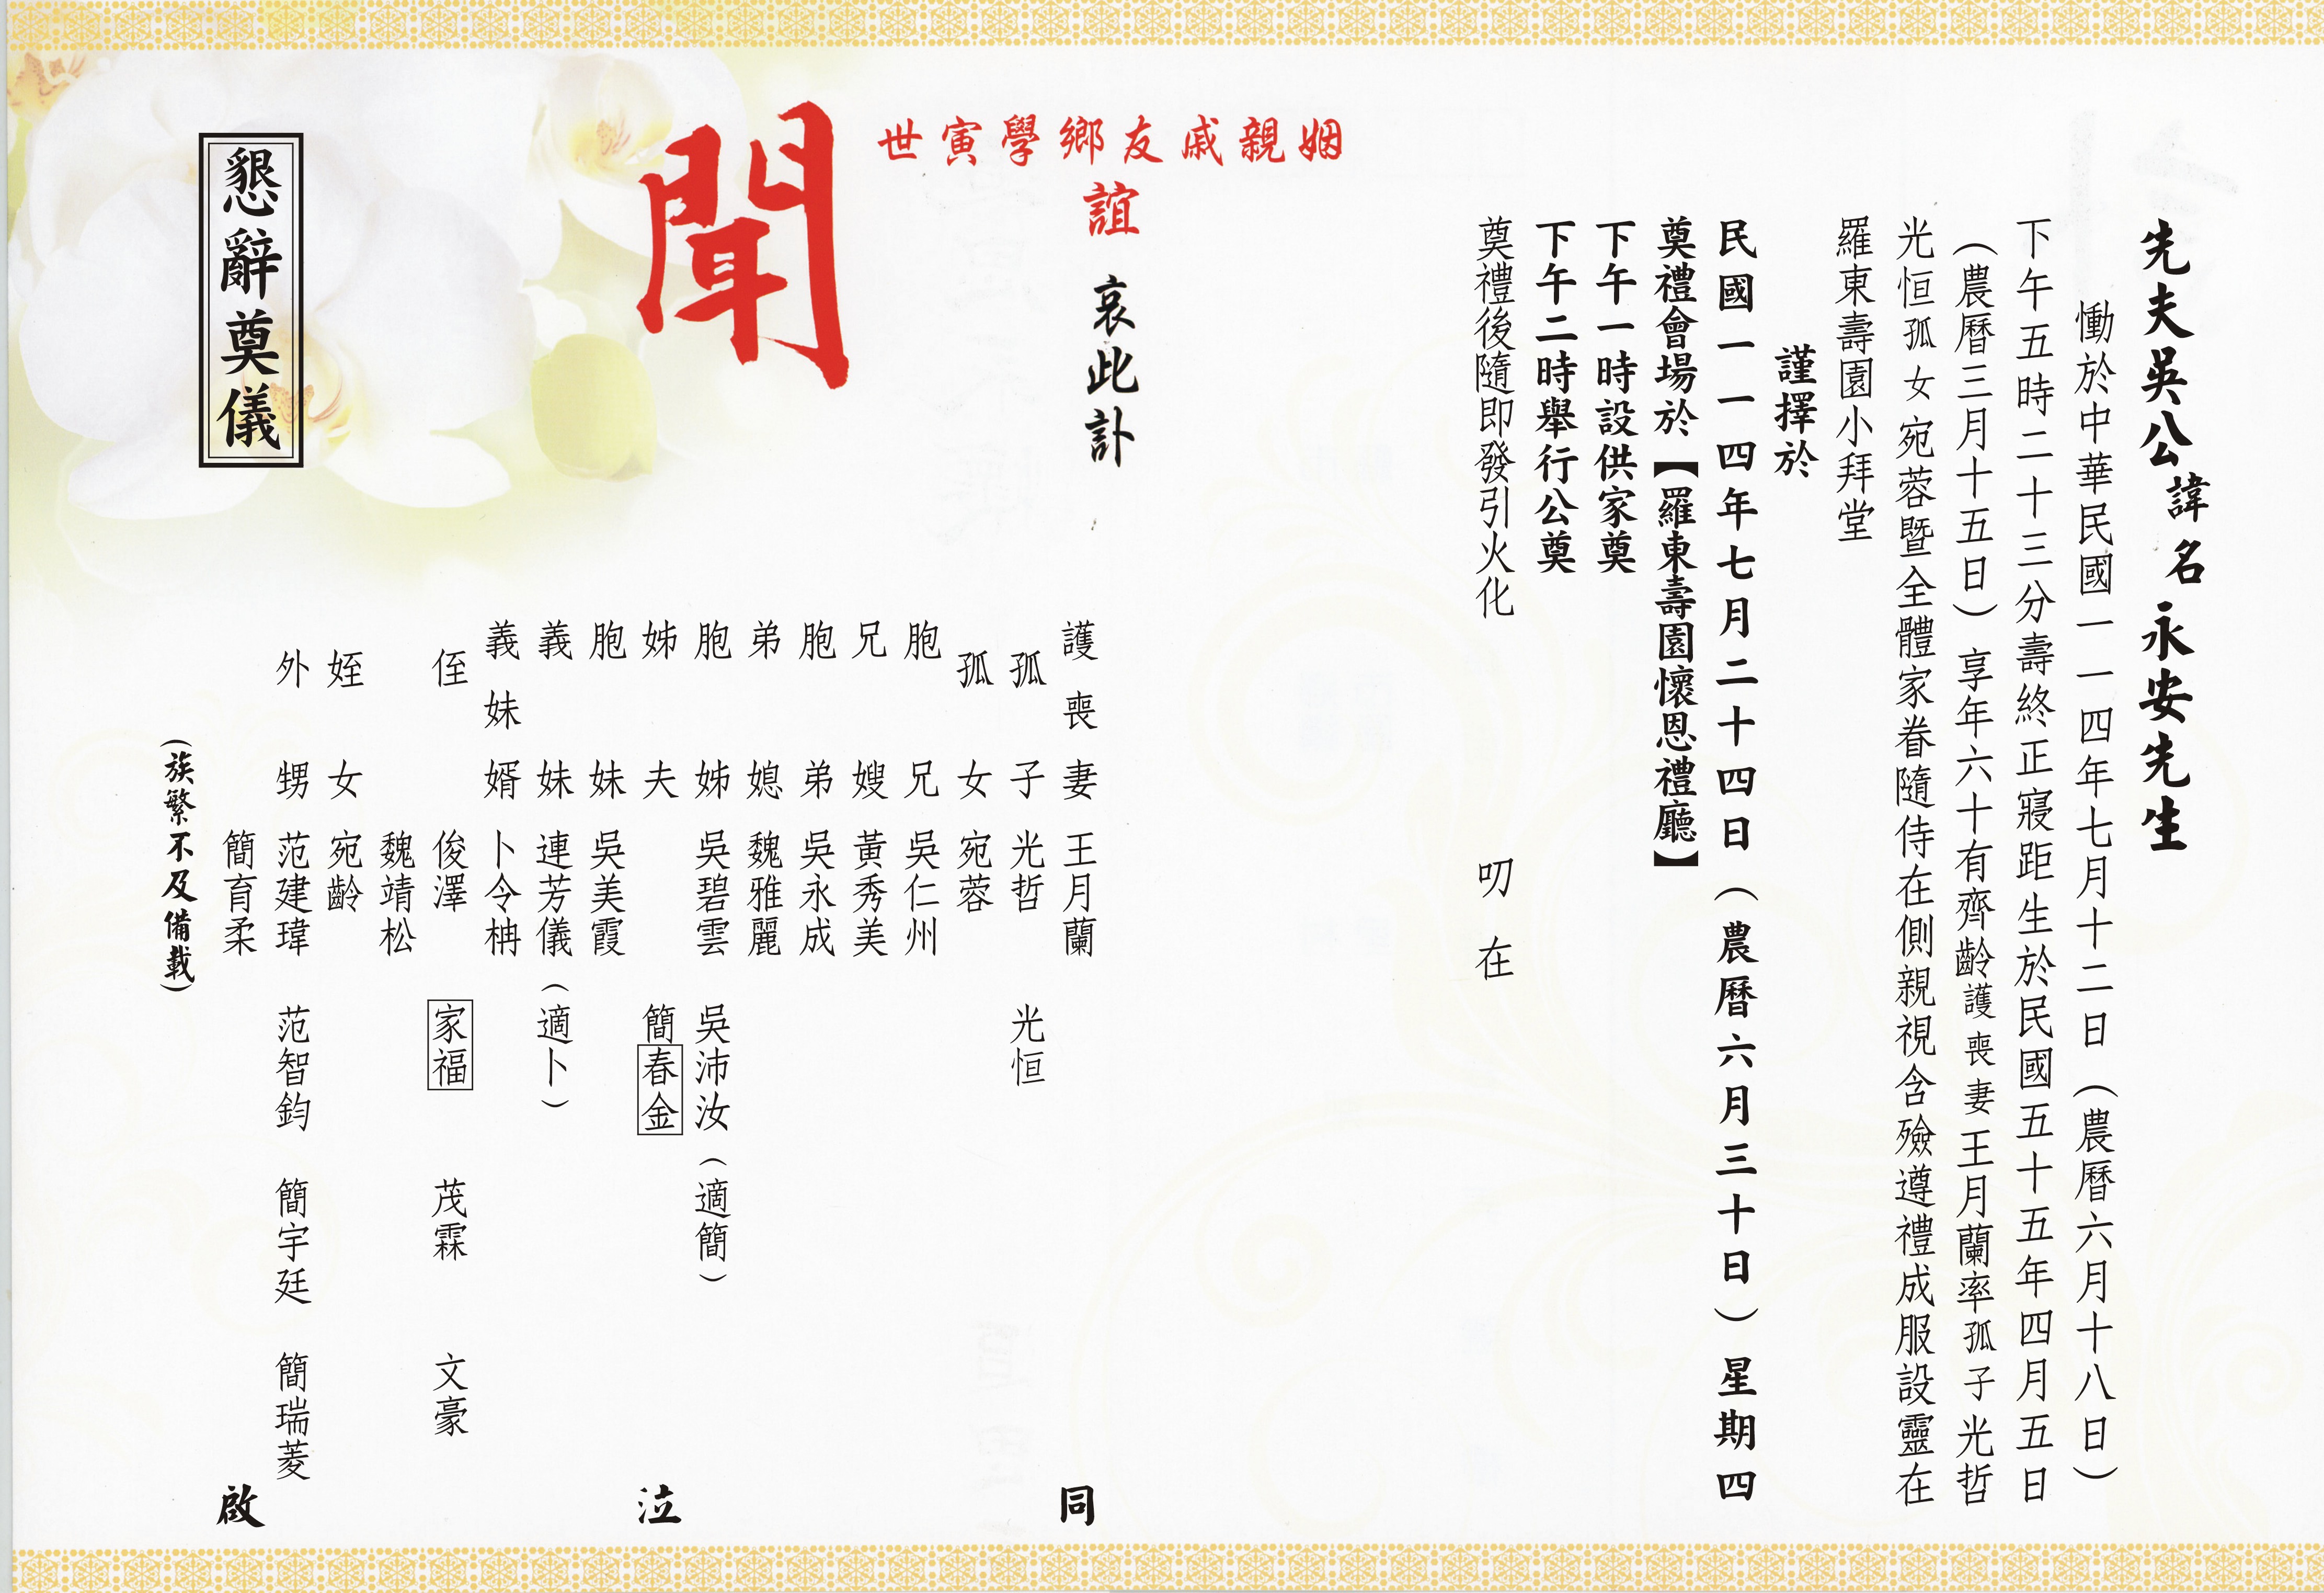 先夫吳公諱名永安先生
慟於中華民國一一四年七月十二日（農曆六月十八日）
下午五時二十三分壽終正寢距生於民國五十五年四月五日
（農曆三月十五日）享年六十有齊齡護喪妻王月蘭率孤子光哲
光恒孤女宛蓉暨全體家眷隨侍在側親視含殮遵禮成服設靈在
羅東壽園小拜堂
謹擇於
民國一一四年七月二十四日（農曆六月三十日）星期四
奠禮會場於【羅東壽園懷恩禮廳】
下午一時設供家奠
下午二時舉行公奠
奠禮後隨即發引火化
叨在
姻親戚友鄉學寅世
誼
哀此訃
聞
護喪妻 王月蘭
孤子 光哲 光恒
孤女 宛蓉
胞兄 吳仁州
兄嫂 黃秀美
胞弟 吳永成
弟媳 魏雅麗
胞姊 吳碧雲 吳沛汝（適簡）
姊夫 簡春金
胞妹 吳美霞
義妹 連芳儀（適卜）
義妹婿 卜令柟
侄 俊澤 家福 茂霖 文豪
魏靖松
姪女 宛齡
外甥 范建瑋 范智鈞 簡宇廷 簡瑞菱
簡育柔
同
泣
啟
（族繁不及備載）
懇辭奠儀